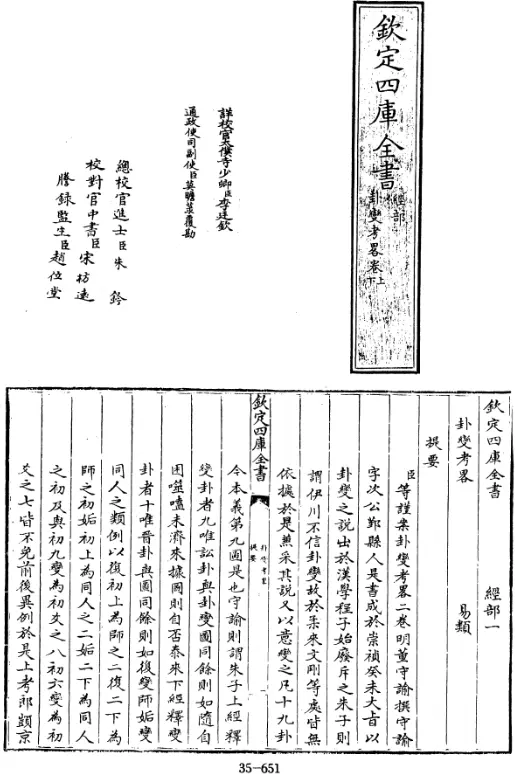 欽定四庫全書
經部
卦變考畧卷上下
詳校官太僕寺少卿臣李廷欽
通政使司副使臣莫瞻菉覆勘
總校官進士臣朱鈐
校對官中書臣宋枋遠
謄錄監生臣趙位堂
欽定四庫全書 經部一
卦變考畧 易類
提要
臣等謹案卦變考畧二卷明董守諭撰守諭
字次公鄞縣人是書成於崇禎癸未大旨以
卦變之說出於漢學程子始廢斥之朱子則
謂伊川不信卦變故於柔來文剛等處皆無
依據於是兼采其說又以意變之凡十九卦
欽定四庫全書
卦變考畧
提要
今本義第九圖是也守諭則謂朱子上經釋
變卦者九唯訟卦與卦變圖同餘則如隨自
困噬嗑未濟來據圖則自否泰來下經釋變
卦者十唯晉卦與圖同餘則如復變師姤變
同人之類例以復初上為師之二復二下為
師之初姤初上為同人之二姤二下為同人
之初及與初九變為初爻之八初六變為初
爻之七皆不免前後異例於是上考郎顗京
35-651